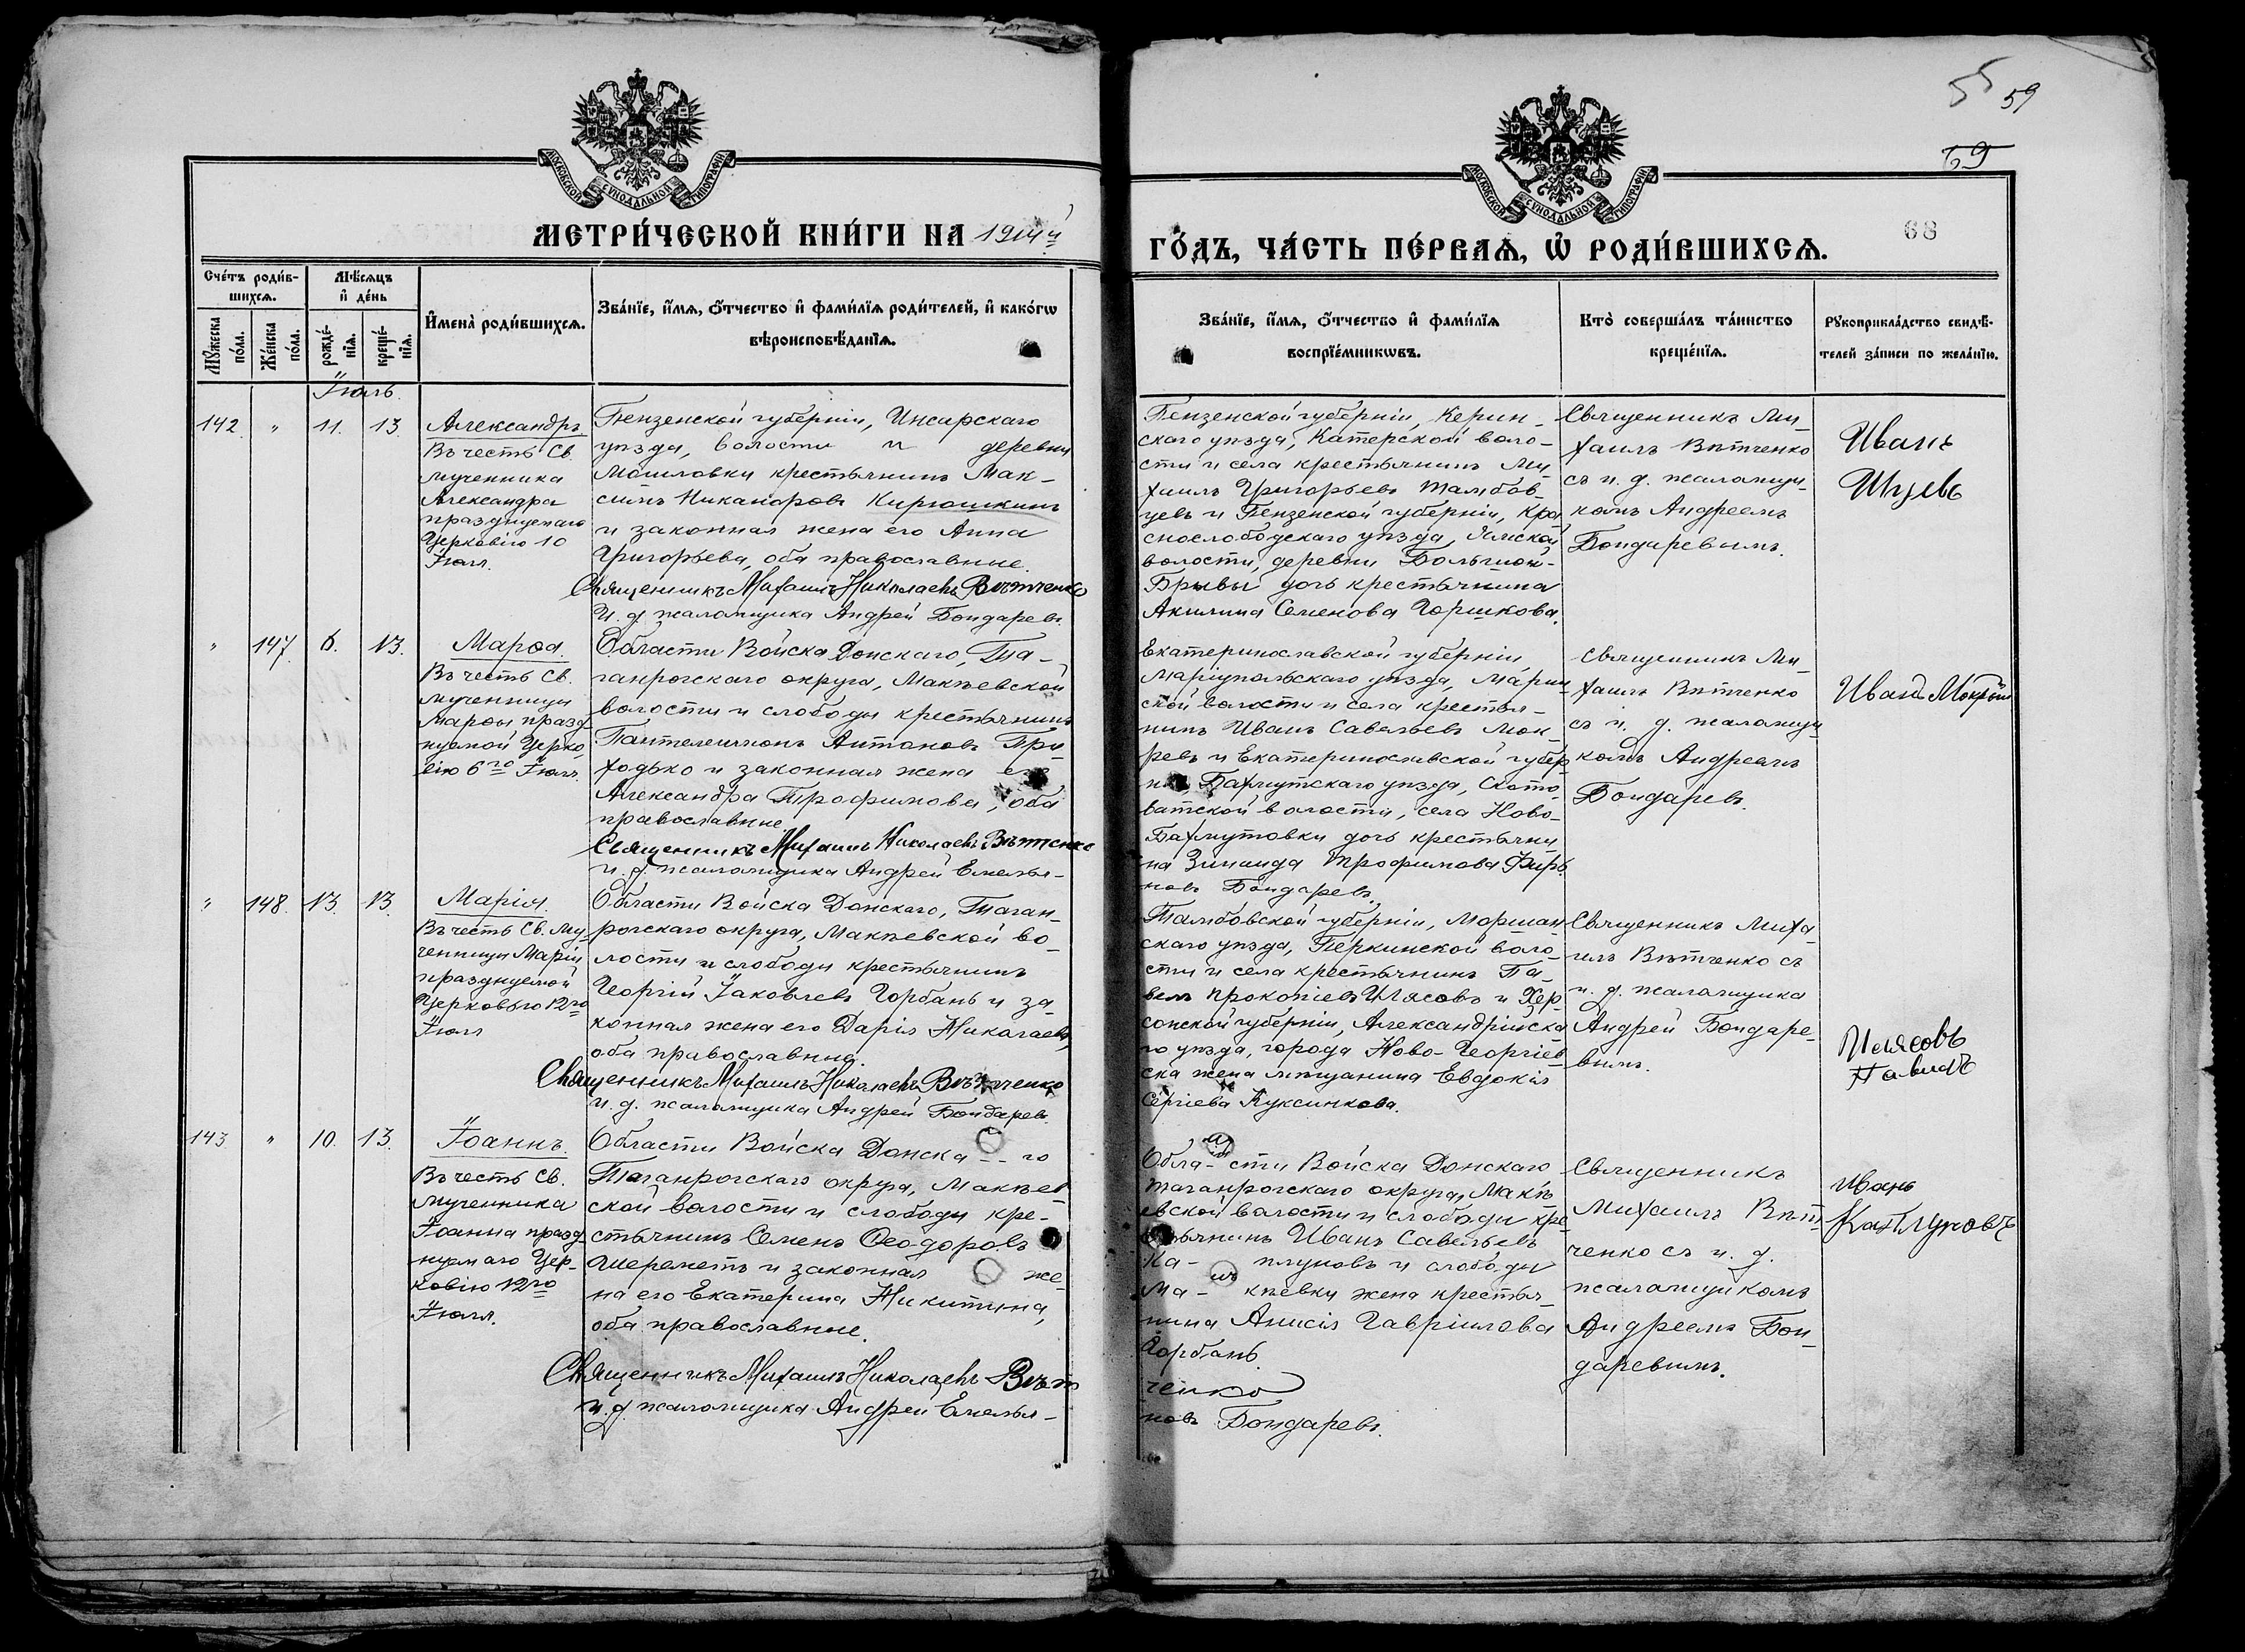 55 59
69
68
МОСКОВСКОЙ СѴНОДАЛЬНОЙ ТИПОГРАФІИ
МОСКОВСКОЙ СѴНОДАЛЬНОЙ ТИПОГРАФІИ
МЕТРИ́ЧЕСКОЙ КНИ́ГИ НА 1914й
ГО́ДЪ, ЧА́СТЬ ПЕ́РВАѦ, Ѽ РОДИ́ВШИХСѦ.
Сче́тъ роди́в-
шихсѧ.
Мꙋ́жеска по́ла.
Же́нска по́ла.
Мѣ́сѧцъ
и҆ де́нь
рожде́-нїѧ.
креще́-нїѧ.
И҆мена̀ роди́вшихсѧ.
Зва́нїе, и҆́мѧ, ѻ҆́тчество и҆ фами́лїѧ роди́телей, и҆ како́гѡ
вѣроисповѣ́данїѧ.
Зва́нїе, и҆́мѧ, ѻ҆́тчество и҆ фами́лїѧ
воспрїе́мникѡвъ.
Кто̀ соверша́лъ та́инство
креще́нїѧ.
Рꙋкоприкла́дство свидѣ́-
телей за́писи по жела́нїю.
Іюль.
142. " 11. 13.
Александръ
Въ честь Св.
мученника
Александра
празднуемаго
Церковію 10
Іюля.
Пензенской губерніи, Инсарскаго
уѣзда, волости и деревни
Мошловки крестьянинъ Мак-
симъ Никаноровъ Кирюшкинъ
и законная жена его Анна
Григорьева, оба православные.
Священникъ Михаилъ Николаевъ Вѣтченко
И. д. псаломщика Андрей Бондаревъ.
Пензенской губерніи, Керин-
скаго уѣзда, Катерской воло-
сти и села крестьянинъ Ми-
хаилъ Григорьевъ Тамбов-
цевъ и Пензенской губерніи, Кра
снослободскаго уѣзда,
волости, деревни Большой-
дочь крестьянина
Акилина Семенова Горшкова.
Священникъ Ми-
хаилъ Вѣтченко
съ и. д. псаломщи-
комъ Андреемъ
Бондаревымъ.
Иванъ
" 147. 6. 13.
Марѳа.
Въ честь Св.
мученницы
Марѳы празд
нуемой Церко
вію 6го Іюля.
Области Войска Донскаго, Та-
ганрогскаго округа, Макѣевской
волости и слободы крестьянинъ
Пантелеимонъ Антоновъ При-
ходько и законная жена его
Александра Трофимова, оба
православные.
Священникъ Михаилъ Николаевъ Вѣтченко
и. д. псаломщика Андрей Емелья-
Екатеринославской губерніи,
Маріупольскаго уѣзда, Маріин
ской волости и села крестья-
нинъ Иванъ Савельевъ Мок-
ревъ и Екатеринославской губер
ніи, Бахмутскаго уѣзда, Ското-
ватской волости, села Ново-
Бахмутовки дочь крестьяни
на Зинаида Трофимова
новъ Бондаревъ.
Священникъ Ми-
хаилъ Вѣтченко
съ и. д. псаломщи
комъ Андреемъ
Бондаревъ.
Иванъ
" 148. 13. 13.
Марія.
Въ честь Св. Му-
ченницы Маріи
празднуемой
Церковью 12го
Іюля
Области Войска Донскаго, Таган-
рогскаго округа, Макѣевской во-
лости и слободы крестьянинъ
Георгій Іаковлевъ Горбань и за-
конная жена его Дарія Николаева,
оба православные.
Священникъ Михаилъ Николаевъ Вѣтченко
и. д. псаломщика Андрей Бондаревъ.
Тамбовской губерніи, Моршан
скаго уѣзда, Перкинской воло-
сти и села крестьянинъ Па-
велъ Прокопіевъ Илясовъ и Хер-
сонской губерніи, Александрійска
го уѣзда, города Ново-Георгіев
ска жена мѣщанина Евдокія
Сергіева Куксинкова.
Священникъ Миха-
илъ Вѣтченко съ
и. д. псаломщика
Андрей Бондаре-
вымъ.
Илясовъ
Павилъ
143 " 10. 13.
Іоаннъ.
Въ честь Св.
мученника
Іоанна празд-
нуемаго Цер-
ковію 12го
Іюля.
Области Войска Донска - - го
Таганрогскаго округа, Макѣев
ской волости и слободы кре-
стьянинъ Семенъ Ѳеодоровъ
Шереметъ и законная же
на его Екатерина Никитина,
оба православные.
Священникъ Михаилъ Николаевъ Вѣт
и. д. псаломщика Андрей Емелья-
Обла- сти Войска Донскаго
Таганрогскаго округа, Макѣ
евской волости и слободы кре
стьянинъ Иванъ Савельевъ
Ка- плуновъ и слободы
Ма- кѣевки жена крестья-
нина Анисія Гавріилова
Горбань.
ченко
новъ Бондаревъ.
Священникъ
Михаилъ Вѣт-
ченко съ и. д.
псаломщикомъ
Андреемъ Бон-
даревымъ.
Иванъ
Каплуновъ